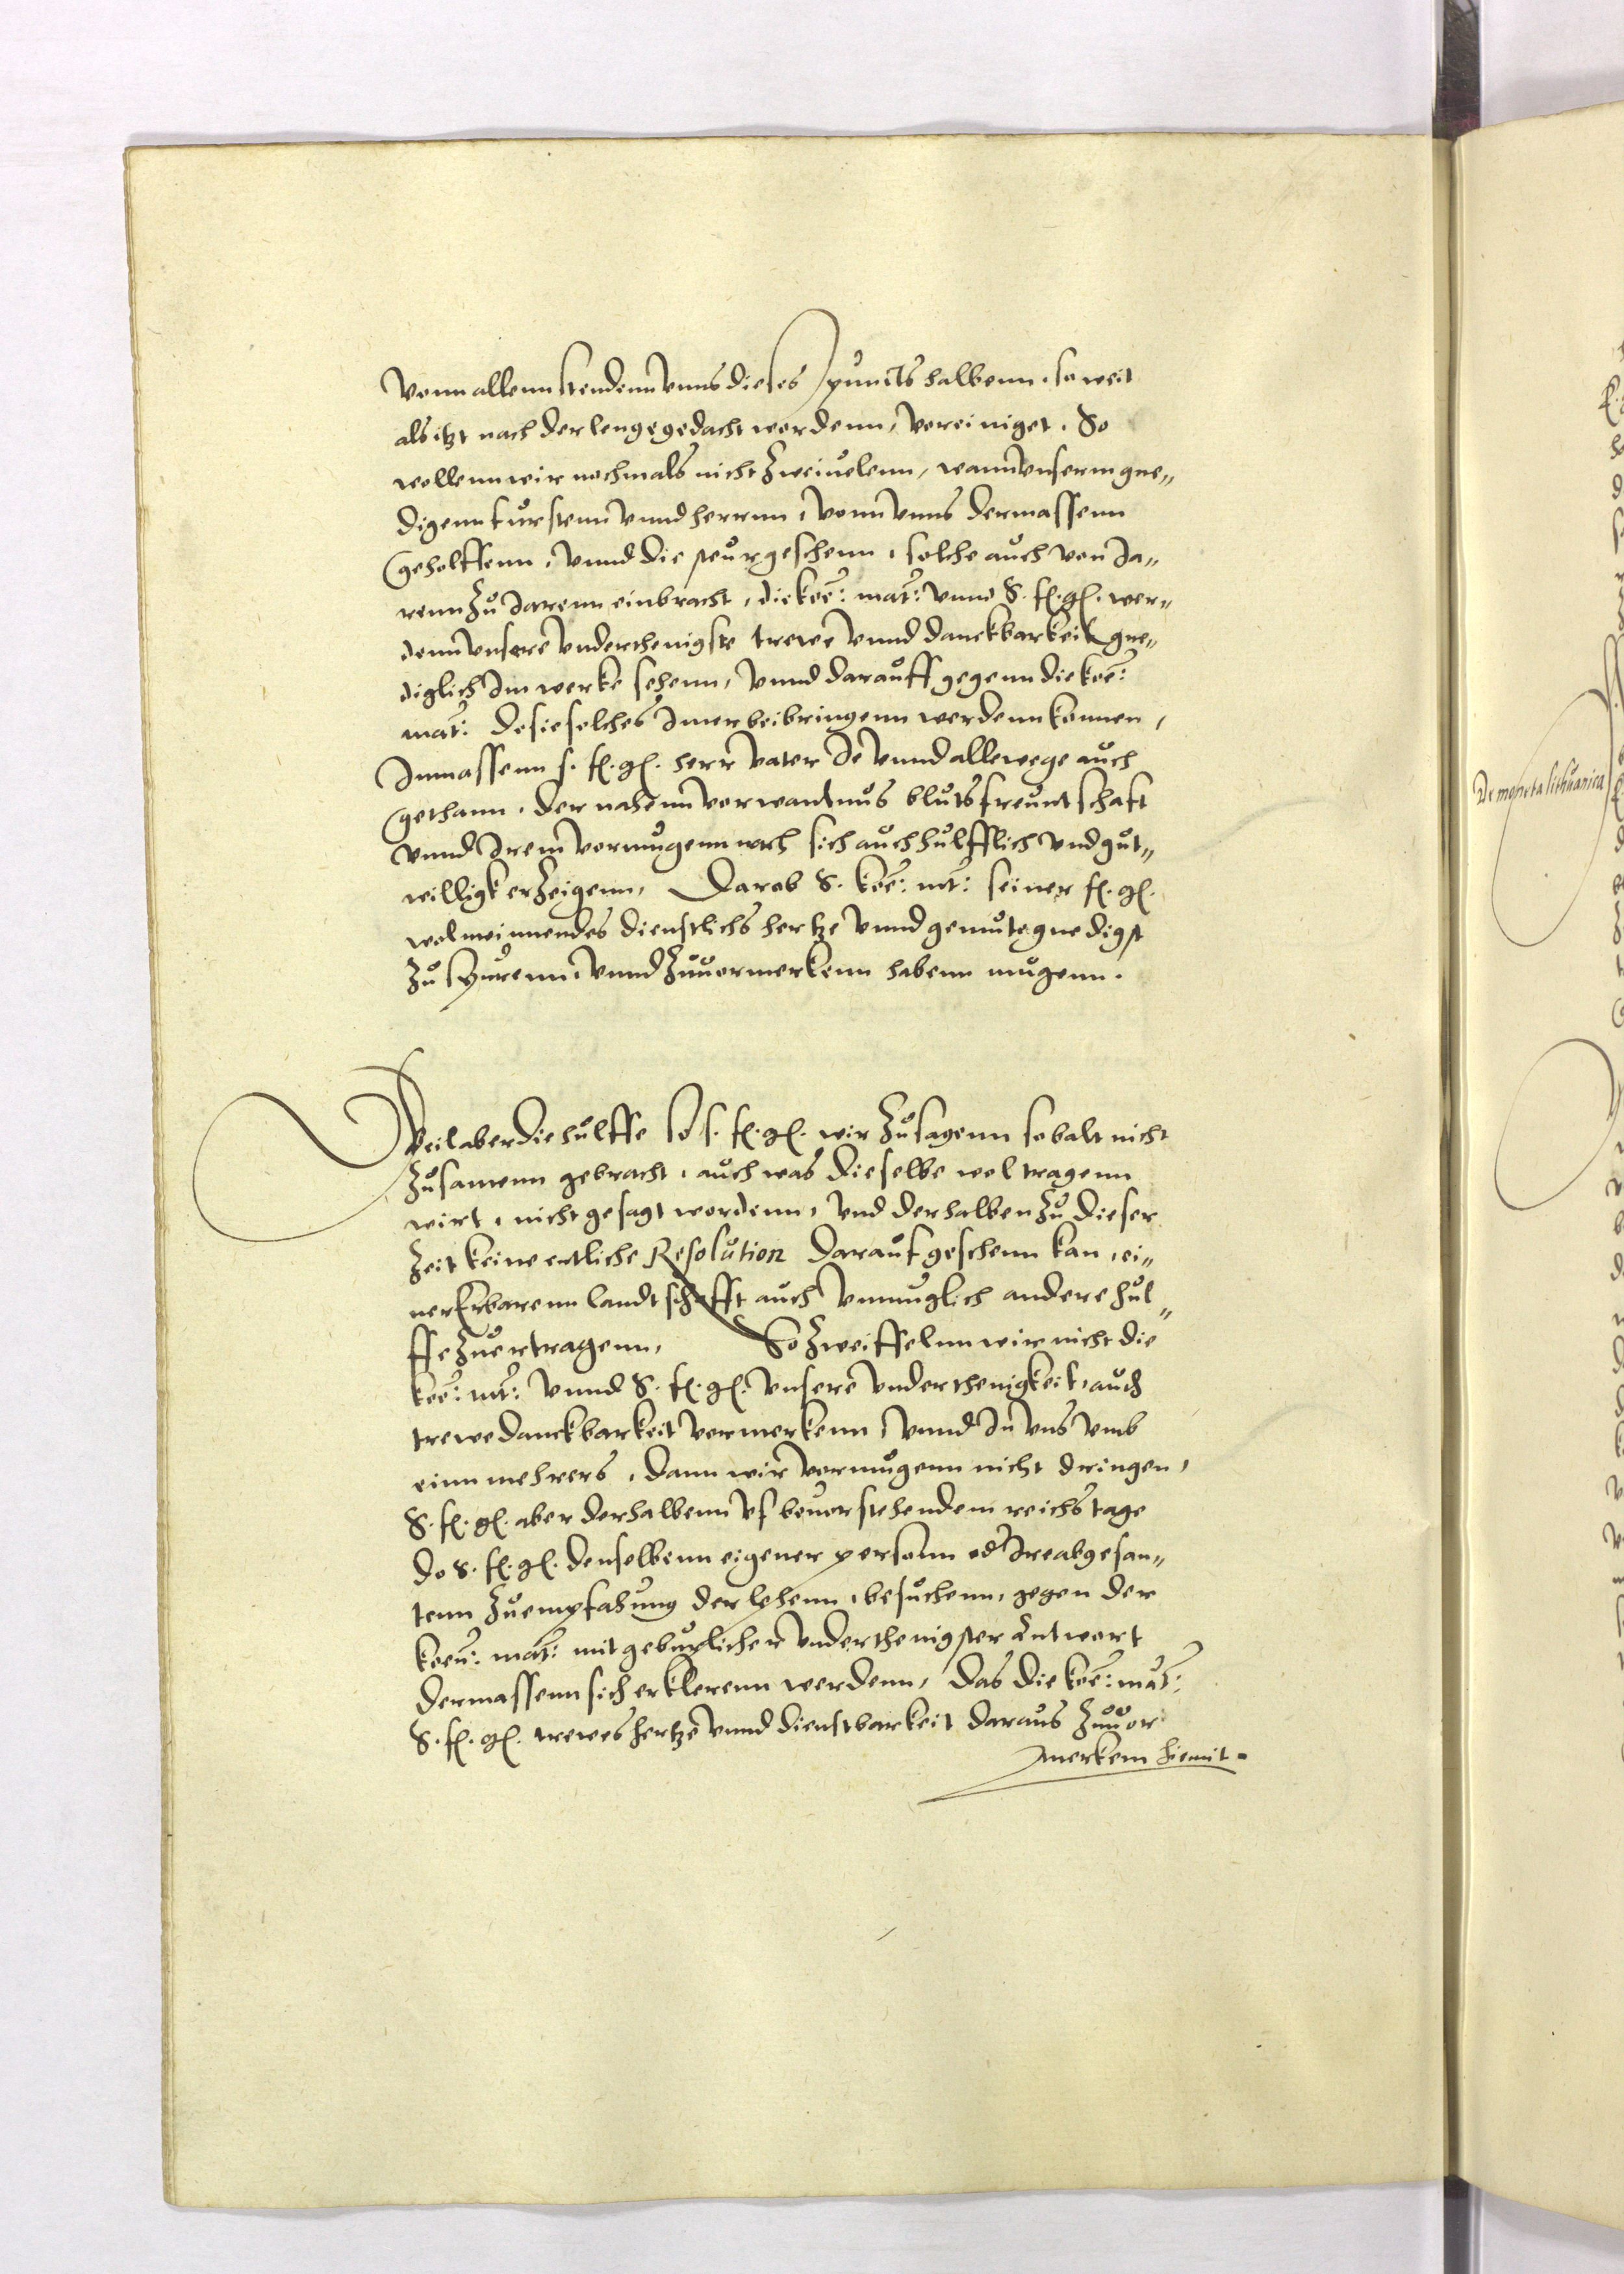 Vonn allenn stendenn vnns dieses puncts halbenn, so weit
als itzt nach der lenge gedacht wordenn, vereiniget. So
wollenn wir nochmals nicht zweiuelenn, wann vnserm gne„
digenn furstenn vnnd herrnn, vonn vnns dermassenn
geholffenn, vnnd die steur geschenn, solche auch von Ja„
renn zu Jarenn einbracht, die koe: mat: vnnd S. f. g. wer„
denn vnsere vnderthenigste trewe vnnd danckbarkeit gne„
diglich Im werke sehenn, vnnd darauff gegenn die koe:
mat: do sie solches Imer beibringenn werdenn konnen,
Inmassenn s. f. g. herr vater Je vnnd allewege auch
gethann, der nahenn vorwantnus blutsfreuntschaft
vnnd Irem vormugenn nach sich auch hulfflich vnd gut„
willigk erzeigenn, Darob S. koe: mt: seiner f. g.
wolmeinnendes dienstlichs hertze vnnd gemute gnedigst
zu spurenn, vnnd zuuormerkenn habenn mugenn.
Weil aber die hulffe so s. f. g. wir zusagenn so balt nicht
zusamenn gebracht, auch was dieselbe wol tragenn
wirt, nicht gesagt wordenn, vnd derhalben zu dieser
zeit keine entliche Resolution darauf geschenn kan, ei„
ner Erbarenn landtschafft auch vnmuglich andere hul„
ffe zuertragenn, So zweiffelnn wir nicht die
koe: mt: vnnd S. f. g. vnsere vnderthenigkeit, auch
trewe danckbarkeit vormerkenn, vnnd In vns vmb
einn mehrers, dann wir vormugenn nicht dringen,
S. f. g. aber derhalbenn vf beuorstehendem reichstage
do S. f. g. denselbenn eigener personn od Ire abgesan„
tenn zu empfahung der lehenn, besuchenn, gegen der
koen: mat: mit geburlicher vnderthenigster Antwort
dermassenn sich erklerenn werdenn, das die koe: mat:
S. f. g. trewes hertze vnnd dienstbarkeit daraus zuuor
merkenn hiemit.
De lithuanica